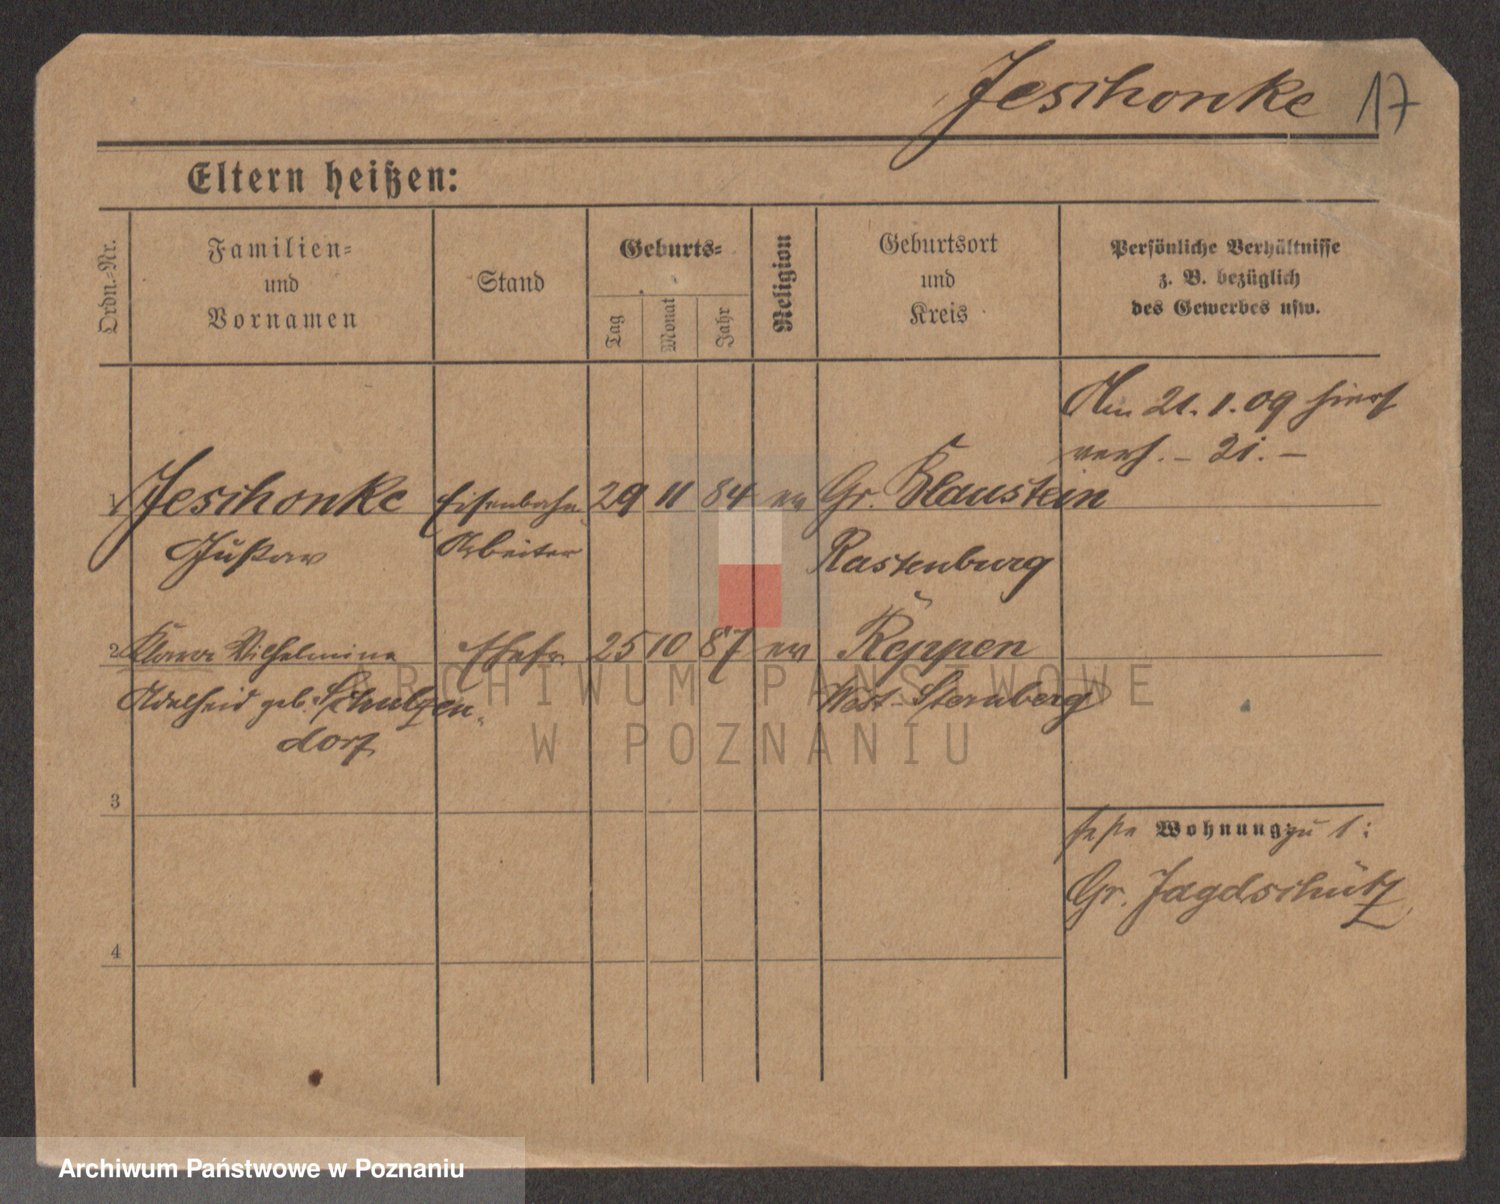 Jeschonke 17
Eltern heißen:
Ordn.-Nr.
Familien-
und
Vornamen
Stand
Geburts-
Tag
Monat
Jahr
Religion
Geburtsort
und
Kreis
Persönliche Verhältnisse
z. B. bezüglich
des Gewerbes usw.
Am 21.1.09 hier
verh. - 21. -
1 Jeschonke Eisenbahn 29 11 84 ev Gr. Blaustein
Gustav Arbeiter Rastenburg
2 Klara Wilhelmine Ehefr. 25 10 87 ev Reppen
Adelheid geb. Schulzen-
dorf
West-Sternberg
3
feste Wohnung zu 1:
Gr. Jagdschütz
4
ARCHIWUM PAŃSTWOWE
W POZNANIU
Archiwum Państwowe w Poznaniu